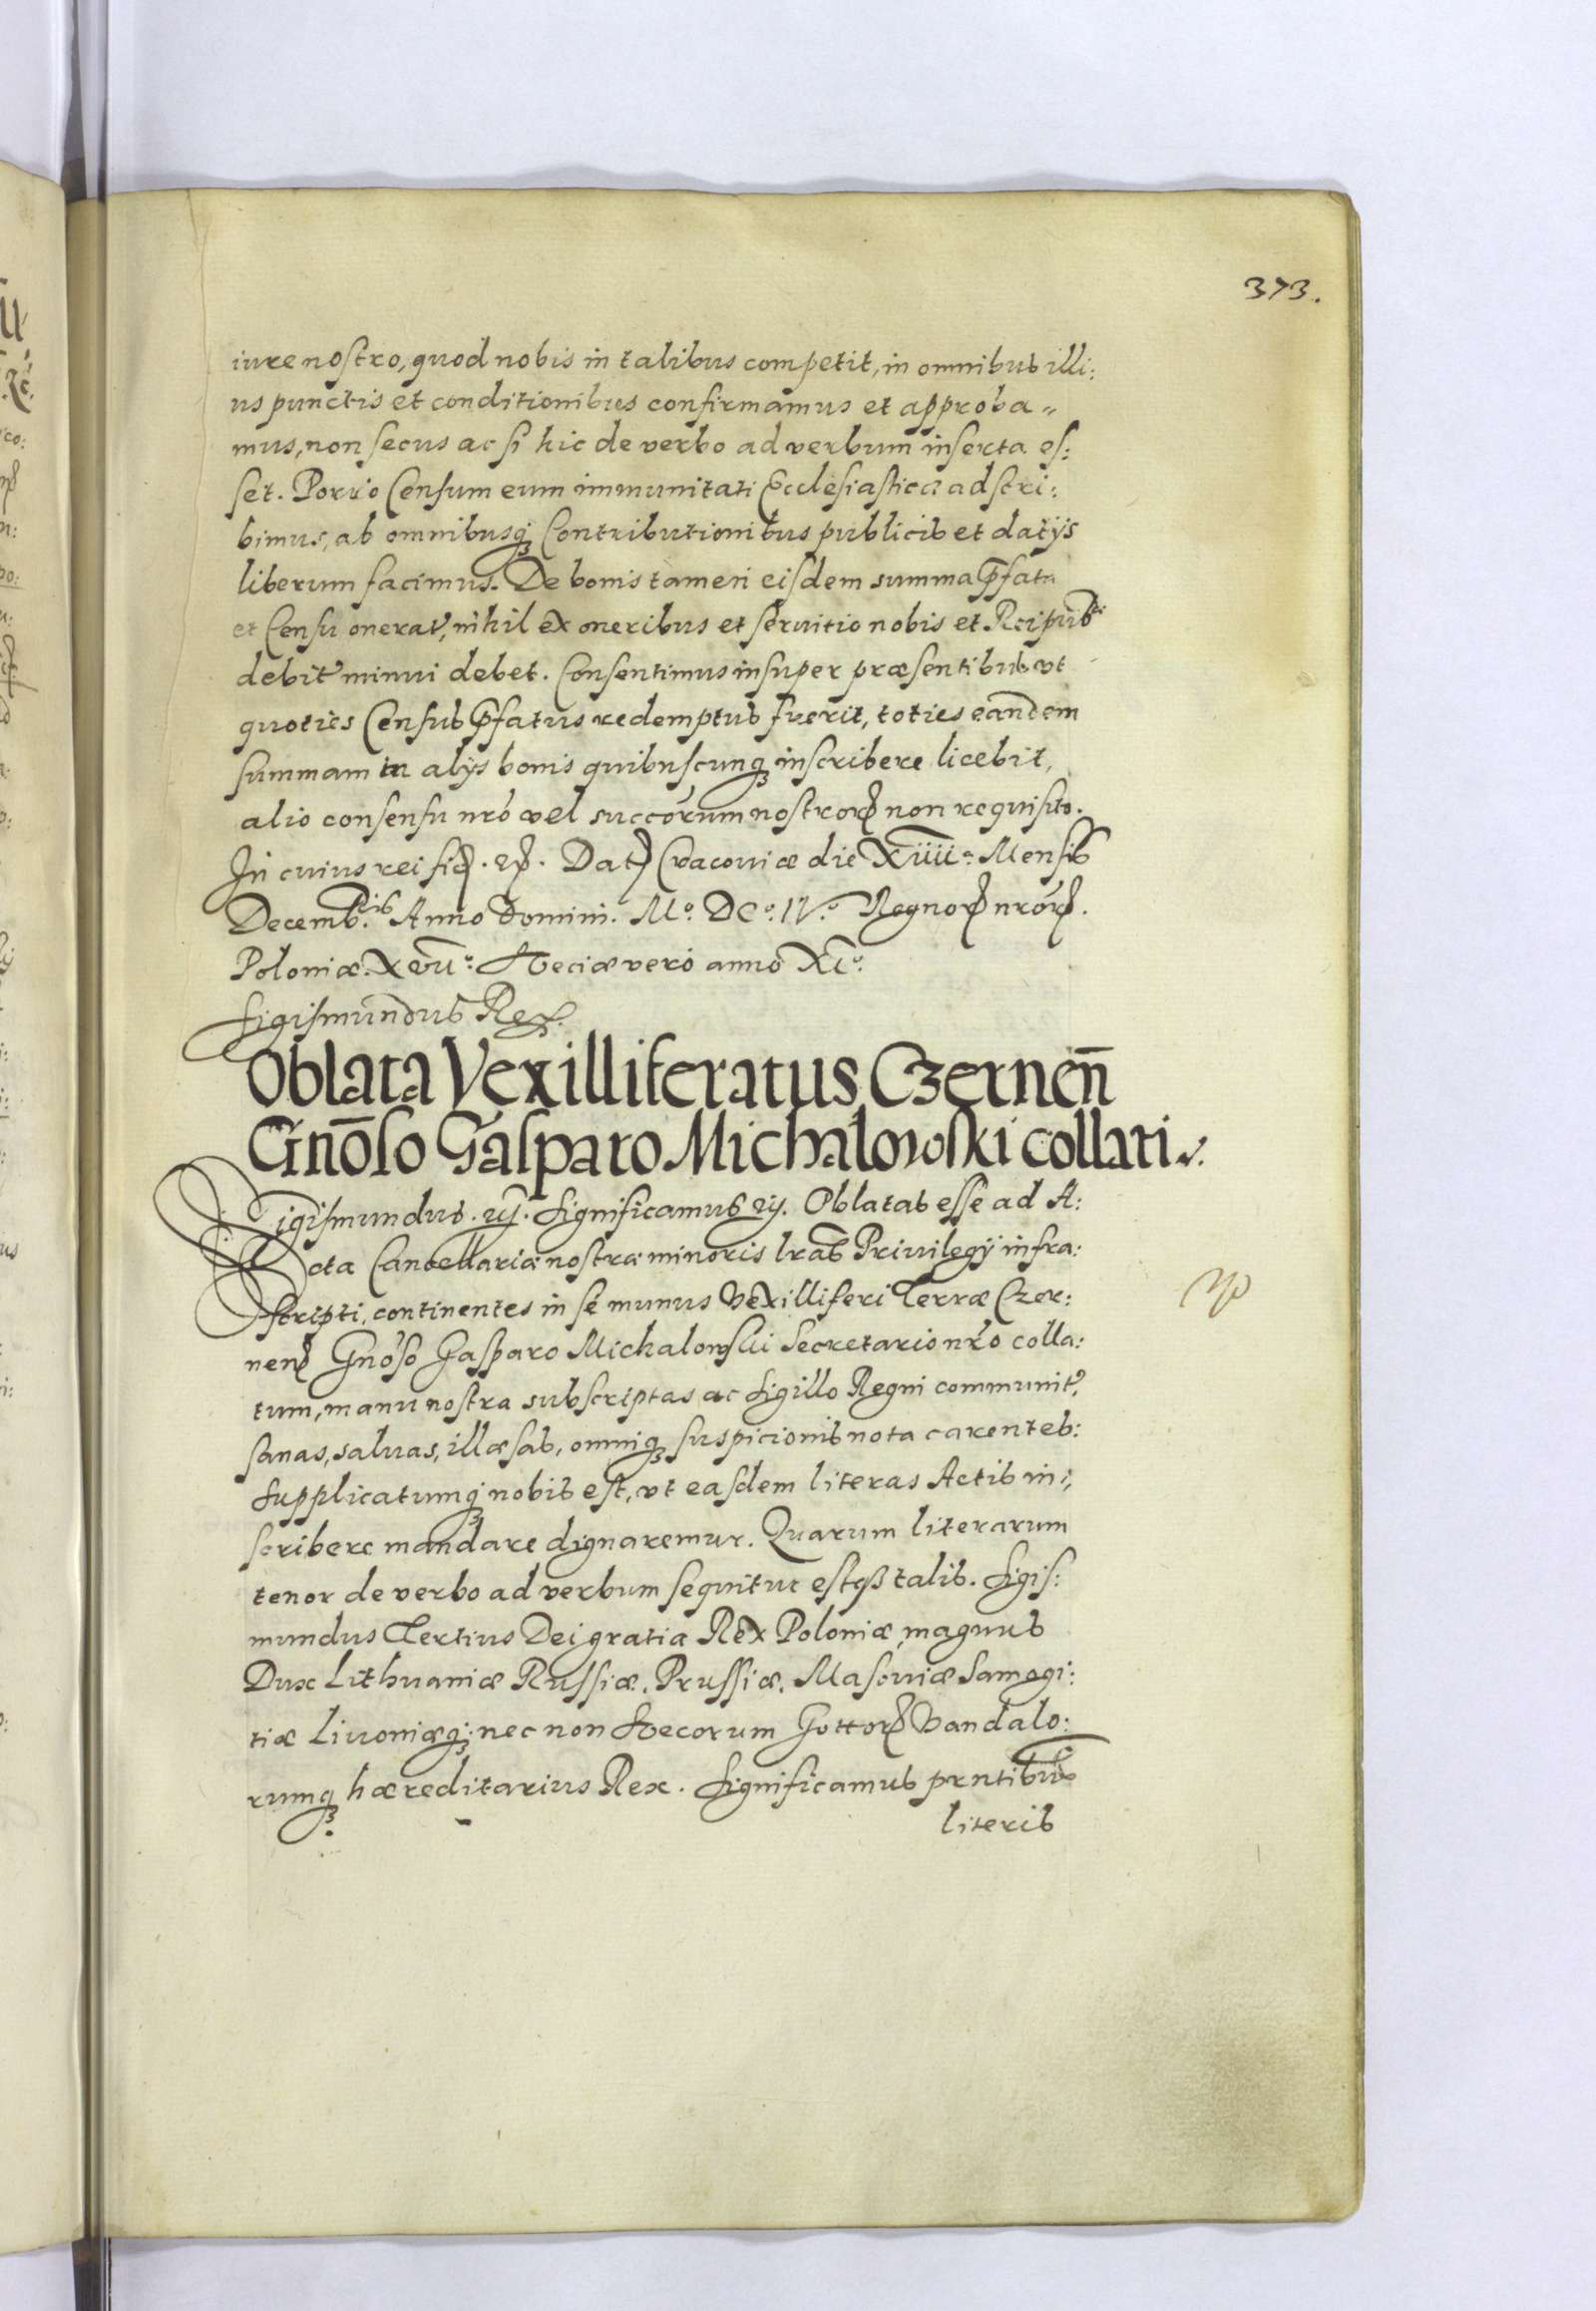 373.
iure nostro, quod nobis in talibus competit, in omnibus illi:
us punctis et conditionibus confirmamus et approba=
mus, non secus ac si hic de verbo ad verbum inserta es:
set. Porro Censum eum immunitati Ecclesiasticæ adscri:
bimus, ab omnibusq; Contributionibus publicis et datijs
liberum facimus. De bonis tamen eisdem summa p̄fata
et Censu onerat', nihil ex oneribus et seruitio nobis et Reipub
debit' minui debet. Consentimus insuper præsentibus vt
quoties Census p̄fatus redemptus fuerit, toties eandem
summam in alijs bonis quibuscunq; inscribere licebit,
alio consensu nr̄o vel succōrum nostror; non requisito.
In cuius rei fid. etc. Dat Cracouiæ die Xiiii.º Mensis
Decemb.ris Anno Domini. Mº. DCº. IVº. Regnor; nrōr;.
Poloniæ. Xvii.º Sveciæ vero anno Xi.º
Sigismundus Rex.
Oblata Vexilliferatus Czernen̄
Gnōso Gasparo Michalowski collati.
Sigismundus. etc. Significamus etc. Oblatas esse ad A:
cta Cancellariæ nostræ minoris lrās Priuilegij infra:
scripti, continentes in se munus Vexilliferi Terræ Czer:
nen Gnōso Gasparo Michalowski Secretario nr̄o colla:
tum, manu nostra subscriptas ac Sigillo Regni communit',
sanas, saluas, illæsas, omniq; suspicionis nota carentes:
Supplicatumq; nobis est, vt easdem literas Actis in:
scribere mandare dignaremur. Quarum literarum
tenor de verbo ad verbum sequitur estq; talis. Sigis:
mundus Tertius Dei gratia Rex Poloniæ, magnus
Dux Lithuaniæ Russiæ, Prussiæ, Masouiæ Samogi:
tiæ Liuoniæq; nec non Svecorum Gottor; Vandalo:
rumq; hæreditarius Rex. Significamus prntibus
literis